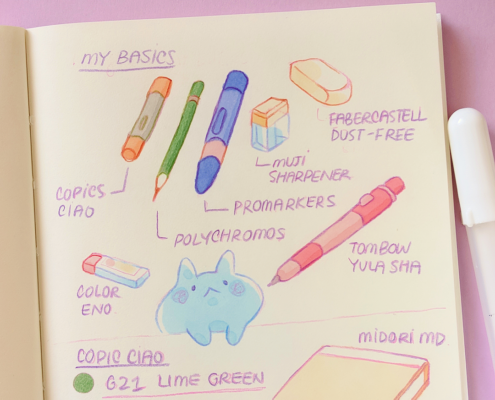 MY BASICS
FABERCASTELL
DUST-FREE
MUJI
SHARPENER
COPICS
CIAO
PROMARKERS
POLYCHROMOS
TOMBOW
YULA SHA
COLOR
ENO
MIDORI MD
COPIC CIAO
G21 LIME GREEN